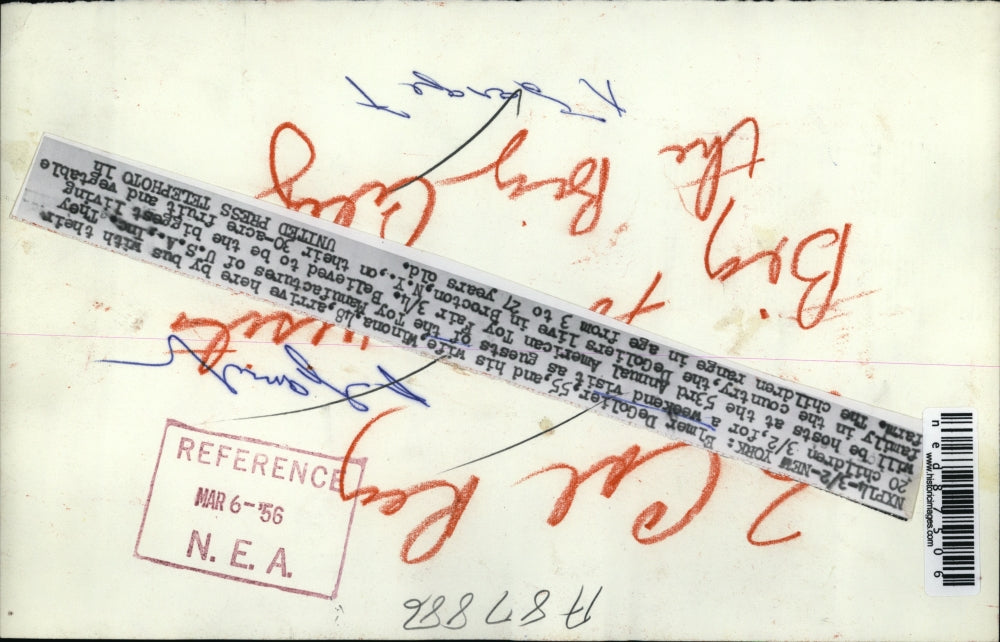 NXP14-3/2-NEW YORK: Elmer DeGolier,55,and his wife,Winona,48,arrive here by bus with their
20 children 3/2,for a weekend visit as guests of the Toy Manufactures of U.S.A.,Inc. They
will be hosts at the 53rd Annual American Toy Fair 3/4. Believed to be the biggest living
family in the country,the DeGoliers live in Brocton,N.Y.,on their 30-acre fruit and vegtable
farm. The children range in age from 3 to 21 years old.
UNITED PRESS TELEPHOTO lh
2 Col Reg
Big
the Big City
REFERENCE
MAR 6-'56
N. E. A.
www.historicimages.com
ned87506